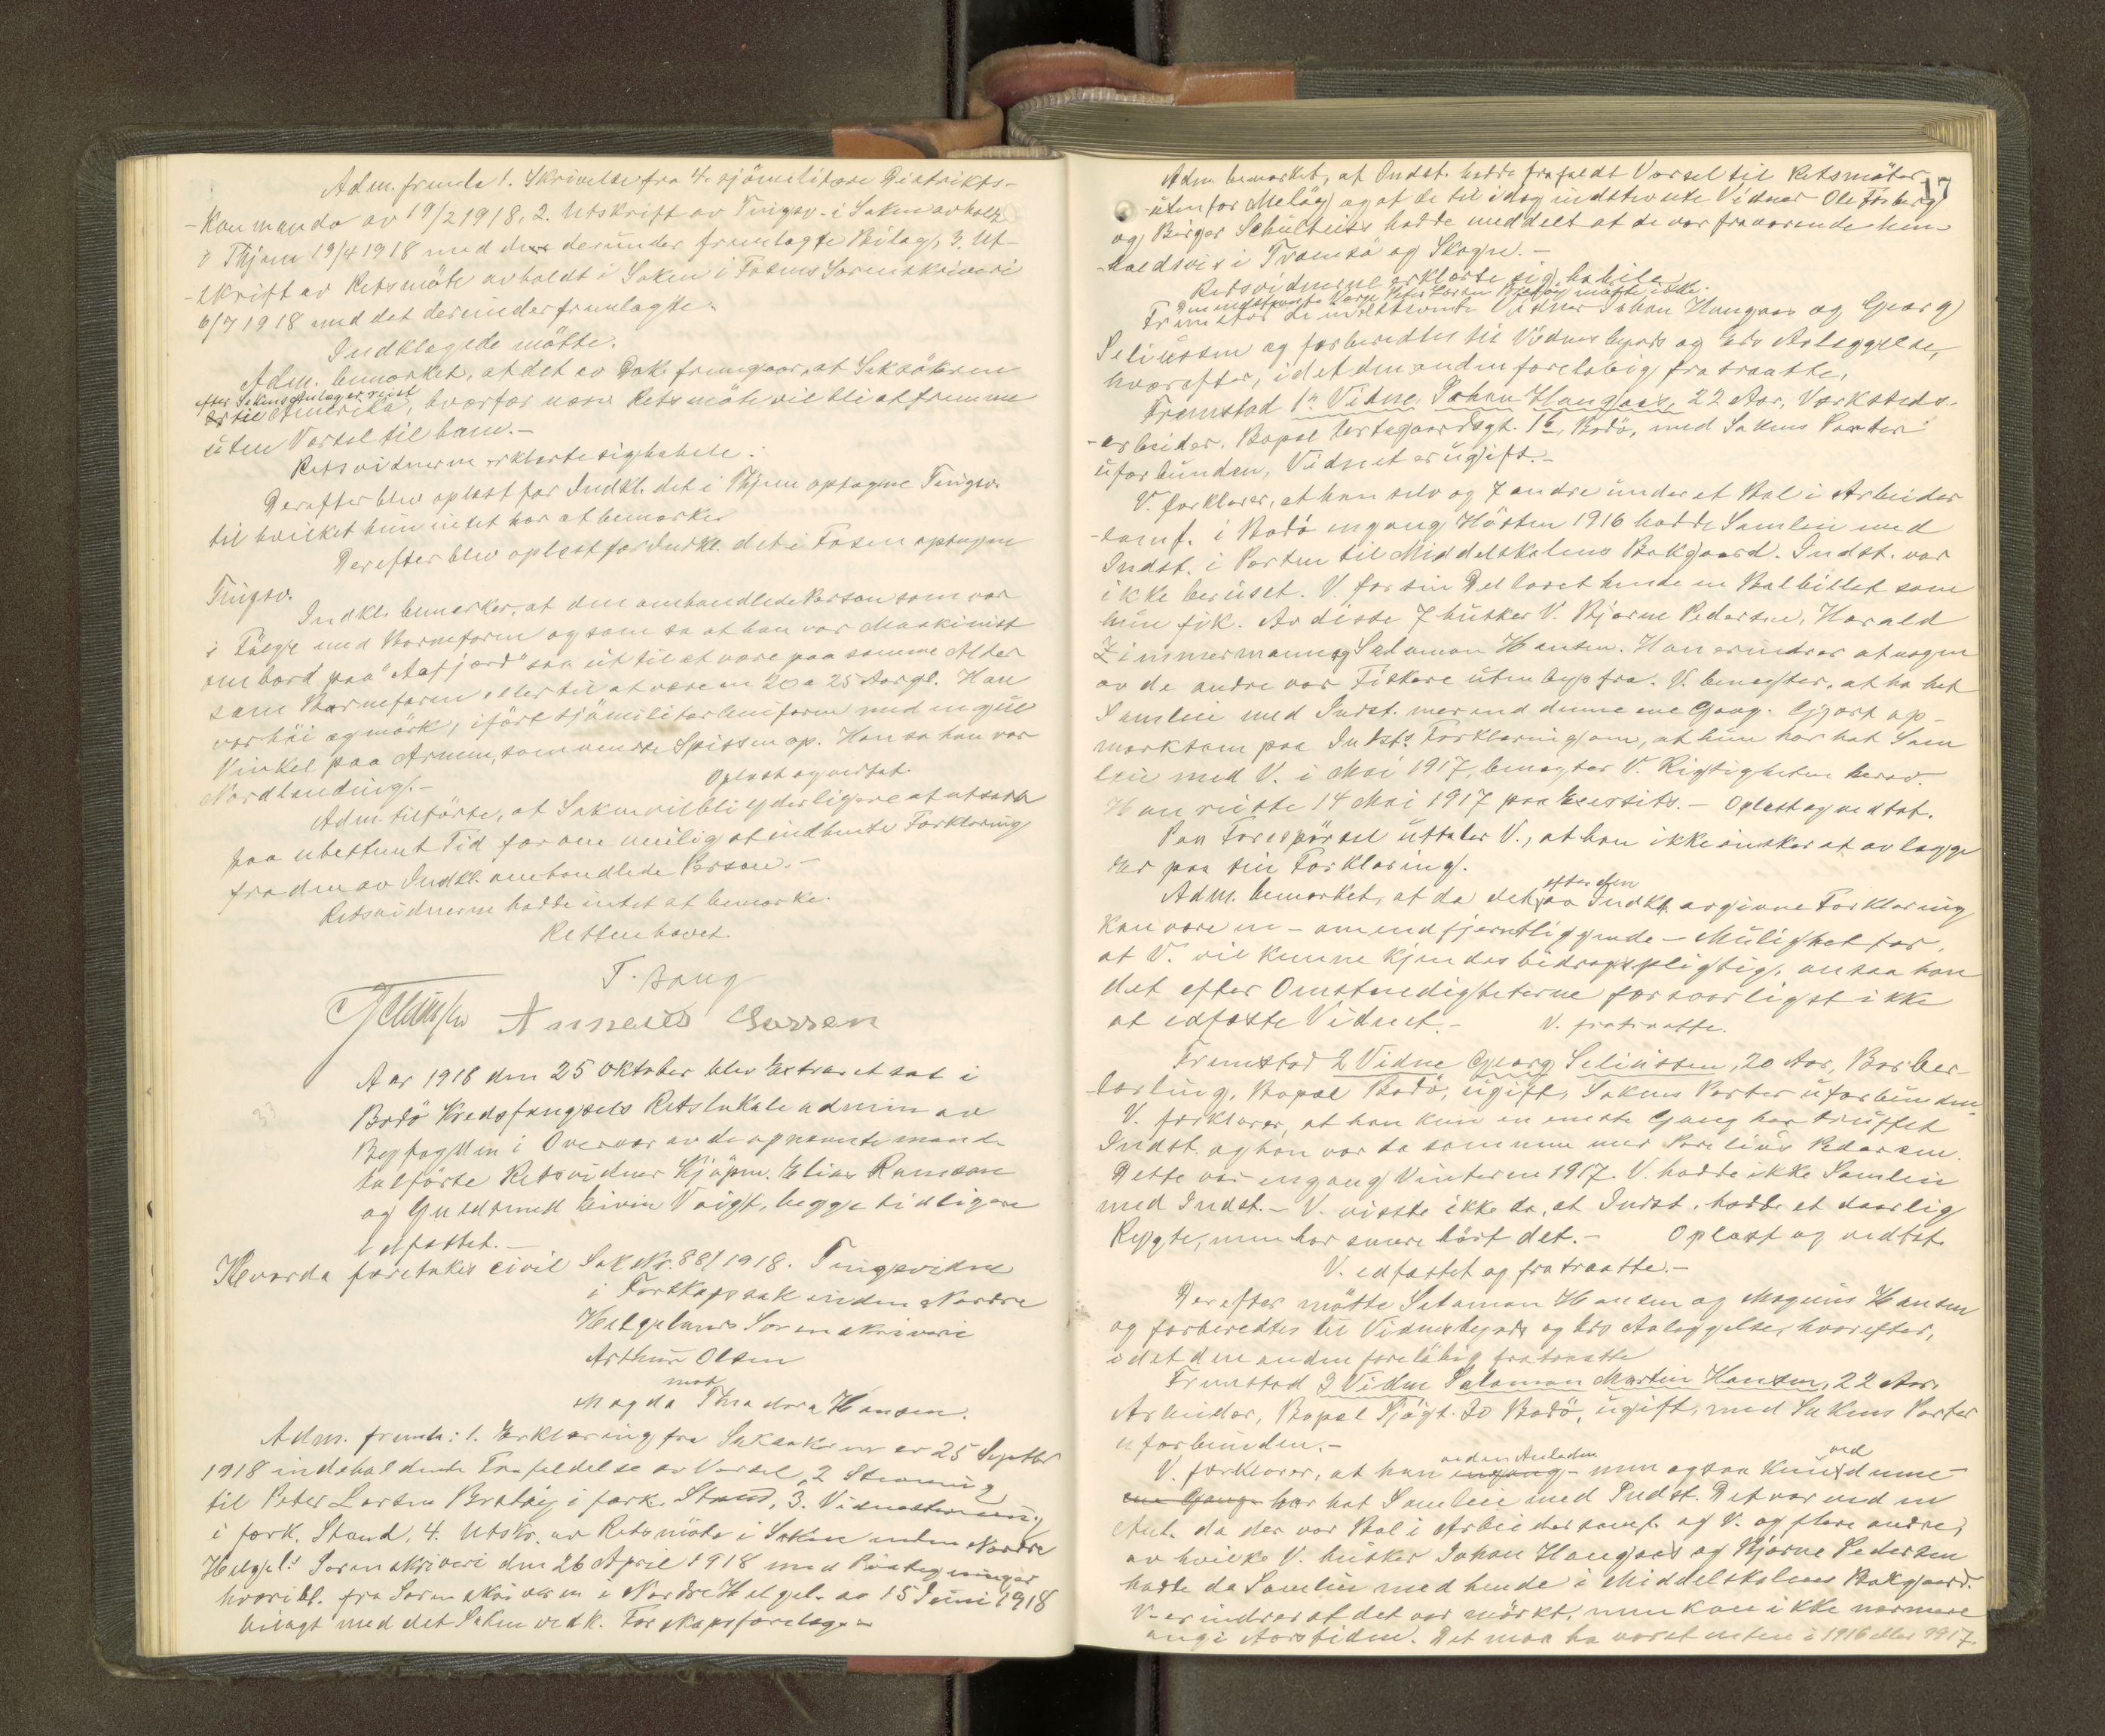 Adm. fremla 1. Skrivelse fra 4. sjömilitære Distrikts-
-kommando av 19/2 1918, 2. Utskrift av Tingsv. i Saken avholdt
i Thjem 19/4 1918 med derunder fremlagte Bilag, 3. Ut-
-skrift av Retsmöte avholdt i Saken i Fosens Sorenskriveri
6/7 1918 med det derunder fremlagte.
Indklagede mötte.
Adm. bemerket, at det av Dok. fremgaar, at Saksökeren
efter Sakens Anlæg er reist
til Amerika, hvorfor nærv. Retsmöte vil bli at fremme
uten Varsel til ham.-
Retsvidnerne erklærte sig habile.
Derefter blev oplæst for Indkl. det i Thjem optagne Tingsv.
til hvilket hun intet har at bemærke.
Derefter blev oplæst for Indkl. det i Fosen optagne
Tingsv.
Indkl. bemerker, at den omhandlede Person som var
i Fölge med Barnefaren og som sa at han var Maskinist
ombord paa "Aafjord" saa ut til at være paa samme Alder
som Barnefaren eller til at være en 20 a 25 Aar gl. Han
var höi og mörk, iført sjömilitær Uniform med en gul
Vinkel paa Armen, som vendte Spissen op. Han sa han var
Nordlænding.-
Oplæst og vedtat.
Adm. tilförte, at Saken vil bli yderligere at utsætte
paa ubestemt Tid for om mulig at indhente Forklaring
fra den av Indkl. omhandlede Person.-
Retsvidnerne hadde intet at bemærke.
Retten hævet.
T. Bang
Anneus Larsen
Aar 1918 den 25 Oktober blev Extraret sat i
Bodö Kredsfængsels Retslokale admin av
Byfogden i Overvær av de opnævnte mand-
talförte Retsvidner Kjöpm. Elias Ramsøm
og Guldsmed Eivin Voigt, begge tidligere
edfæstet.-
Hvorda foretokes civil Sak Nr. 88/1918. Tingsvidne
i Farskapssak inden Nordre
Helgelands Sorenskriveri
Arthur Olsen
mot
Magda Theodora Hansen.
Adm. fremla: 1. Erklæring fra Saksøkeren av 25 Septbr
1918 indeholdende Frafaldelse av Varsel, 2 Stevning
til Peter Larsen Bratöy i fork. Stand, 3. Vidnestevning
i fork. Stand, 4. Utskr. av Retsmöte i Saken inden Nordre
Helgel.s Sorenskriveri den 26 April 1918 med Paategninger
hvoribl. fra Sorenskriveren i Nordre Helgel. av 15 Juni 1918
bilagt med det Saken vedk. Farskapsforelæg.-
17
Adm. bemærket, at Indst. hadde frafaldt Varsel til Retsmöter
utenfor Melöy og at de til idag indstevnte Vidner Ole Forberg
og Birger Schulteiss hadde meddelt at de var fraværende hen-
-holdsvis i Tromsö og Skogn.-
Retsvidnerne erklærte sig habile.
Den indstevnte Værge Peter Larsen Bratöy mötte ikke.
Fremstod de indstevnte Vidner Johan Haugaas og Georg
Seliussen og forberedtes til Vidnesbyrds og Eds Avlæggelse,
hvorefter, idet den anden foreløbig fratraatte,
Fremstod 1ste Vidne, Johan Haugaas, 22 Aar, Værksteds-
-arbeider. Bopæl Urtegaardsgt. 16, Bodö, med Sakens Parter
uforbunden, Vidnet er ugift.-
V. forklarer, at han selv og 7 andre under et Bal i Arbeider-
-samf. i Bodö engang Hösten 1916 hadde Samleie med
Indst. i Porten til Middelskolens Bakgaard. Indst. var
ikke beruset. V. for sin Del lovet hende en Balbillet som
hun fik. Av disse 7 husker V. Bjarne Pedersen, Harald
Zimmermann og Salamon Hansen. Han erindrer at nogen
av de andre var Fiskere utenbys fra. V. benegter, at ha hat
Samleie med Indst. mer end denne ene Gang. Gjort op-
merksom paa Indst.s Forklaring om, at hun har hat Sam-
leie med V. i Mai 1917, benegter V. Rigtigheten herav.
Han reiste 14 Mai 1917 paa Exersits.- Oplæst og vedtat.
Paa Forespörsel uttaler V., at han ikke önsker at avlægge
Ed paa sin Forklaring.
Adm. bemerket, at da det efter den av Indkl. avgivne Forklaring
kan være en - om end fjerntliggende - Mulighet for,
at V. vil kunne kjendes bidragspligtig, ansaa han
det efter Omstendigheterne forsvarligst ikke
at edfæste Vidnet.- V. fratraatte.
Fremstod 2 Vidne Georg Seliussen, 20 Aar, Barber-
lærling, Bopæl Bodö, ugift, Sakens Parter uforbunden
V. forklarer, at han kun en eneste Gang har truffet
Indst. og hon var da sammen med Parelius Pedersen.
Dette var engang Vinteren 1917. V. hadde ikke Samleie
med Indst.- V. visste ikke da, at Indst. hadde et daarlig
Rygte, men har senere hört det.- Oplæst og vedtat
V. edfæstet og fratraatte.-
Derefter mötte Salamon Hansen og Magnus Hansen
og forberedtes til Vidnesbyrds og Eds Avlæggelse, hvorefter,
idet den anden foreløbig fratraatte
Fremstod 3 Vidne Salamon Martin Hansen, 22 Aar,
Arbeider, Bopæl Sjögt. 30 Bodö, ugift, med Sakens Parter
uforbunden.-
V. forklarer, at han engang - men ogsaa kun ved denne
ene Gang har hat Samleie med Indst. Det var ved en
Anl. da der var Bal i Arbeidersamf. og V. og flere andre,
av hvilke V. husker Johan Haugaas og Bjarne Pedersen
hadde da Samleie med hende i Middelskolens Bakgaard.
V. erindrer at det var mörkt, men kan ikke nærmere
angi Aarstiden. Det maa ha været enten i 1916 eller 1917.